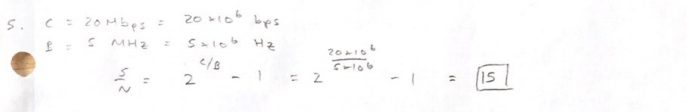 5. C = 20 Mbps = 20 × 10⁶ bps
B = 5 MHz = 5 × 10⁶ Hz
S/N = 2^(C/B) - 1 = 2^(20×10⁶/5×10⁶) - 1 = 15